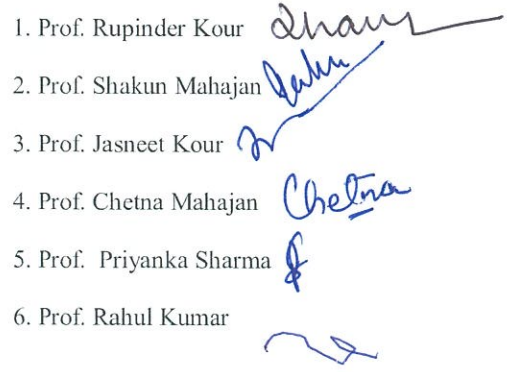 1. Prof. Rupinder Kour
2. Prof. Shakun Mahajan
3. Prof. Jasneet Kour
4. Prof. Chetna Mahajan Chetna
5. Prof. Priyanka Sharma
6. Prof. Rahul Kumar